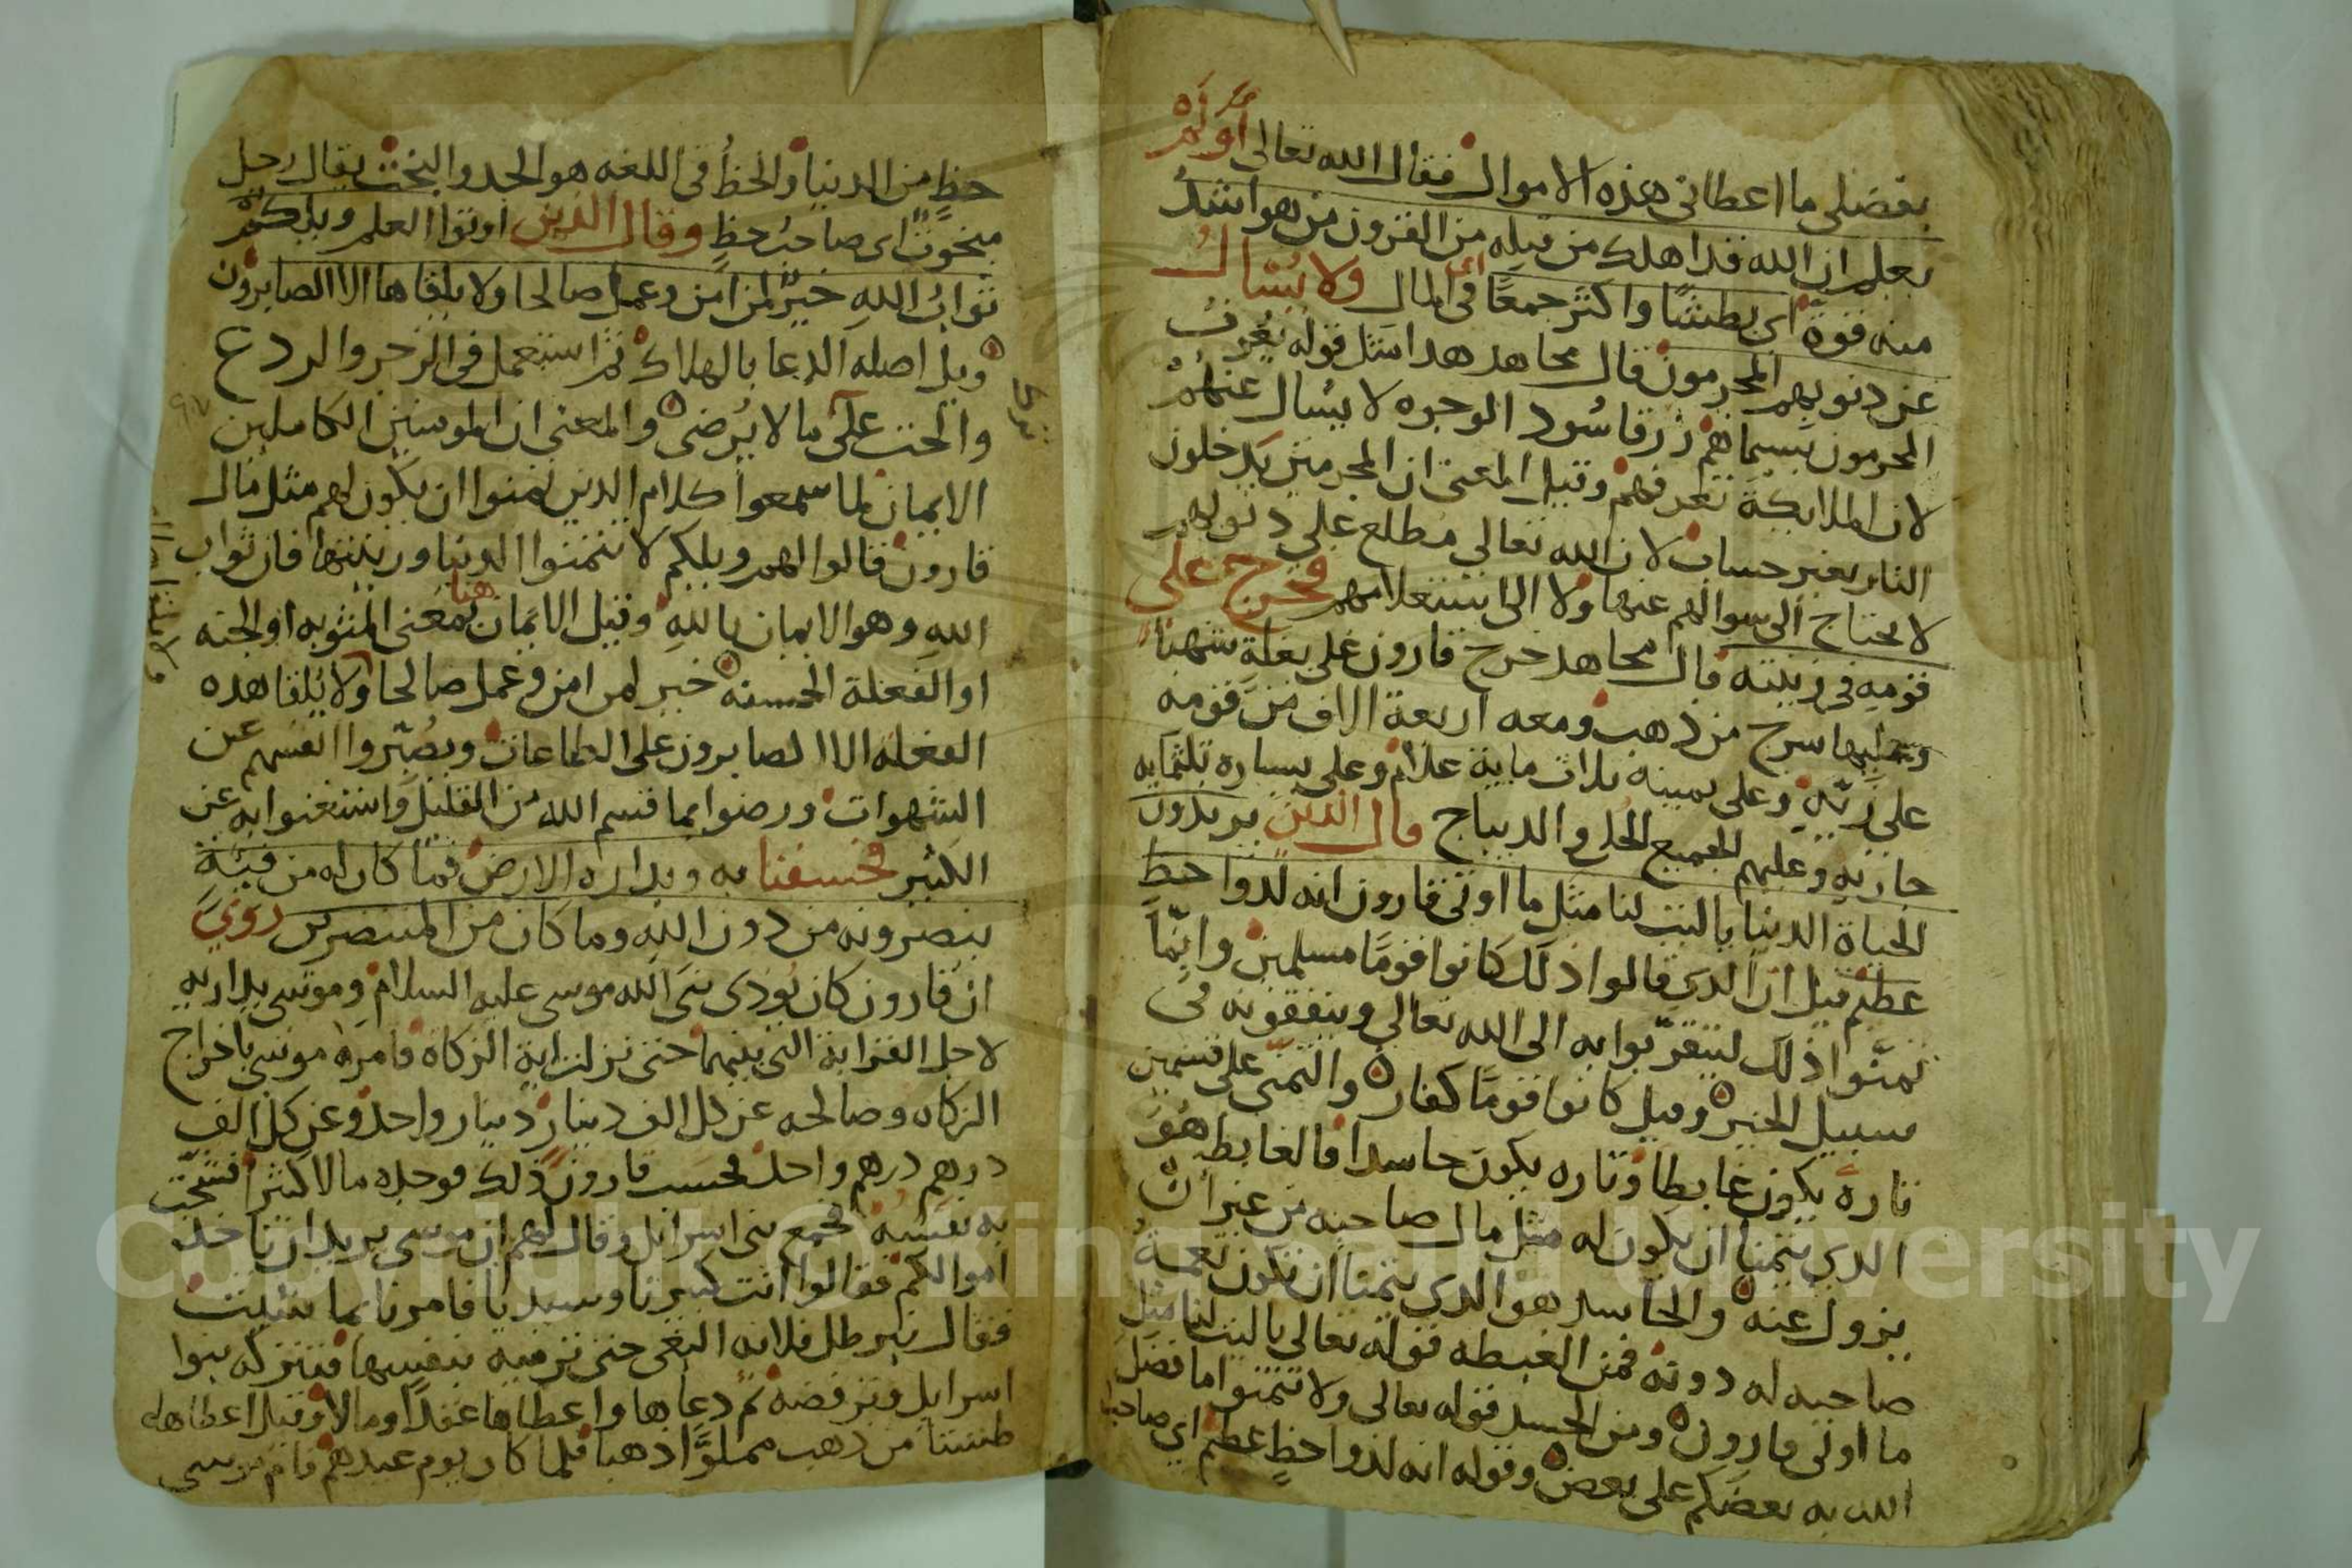 بفضلى ما اعطانى هذه الاموال فقال الله تعالى أولم
يعلم ان الله قد اهلك من قبله من القرون من هو اشد
منه قوة اى بطشا واكثر جمعا فى المال ولا يسال
عن ذنوبهم المجرمون قال مجاهد هذا مثل قوله يعرف
المجرمون بسيماهم زرقا سود الوجوه لا يسال عنهم
لان الملايكة تعرفهم وقيل المعنى ان المجرمين يدخلون
النار بغير حساب لان الله تعالى مطلع على ذنوبهم
لا يحتاج الى سوالهم عنها ولا الى استعلامهم فخرج على
قومه فى زينته قال مجاهد خرج قارون على بغلة شهبا
وعليها سرج من ذهب ومعه اربعة الاف من قومه
على زيه وعلى يمينه ثلاث ماية غلام وعلى يساره ثلثمايه
جاريه وعليهم الجميع الحلى والديباج قال الذين يريدون
الحياة الدنيا ياليت لنا مثل ما اوتى قارون انه لذوا حظ
عظيم قيل ان الذى قالوا ذلك كانوا قوما مسلمين وانما
تمنوا ذلك ليتقربوا به الى الله تعالى وينفقونه فى
سبيل الخير وقيل كانوا قوما كفار والتمنى على قسمين
تارة يكون غابطا وتاره يكون حاسدا فالغابط هو
الذى يتمنا ان يكون له مثل مال صاحبه من غير ان
يزول عنه والحاسد هو الذى يتمنا ان تكون نعمة
صاحبه له دونه فمن الغبطه قوله تعالى ياليت لنا مثل
ما اوتى قارون ومن الحسد قوله تعالى ولا تتمنوا ما فضل
الله به بعضكم على بعض وقوله انه لذوا حظ عظيم اى صاحب
حظ من الدنيا والحظ فى اللغه هو الجد والبخت يقال رجل
مبخوت اى صاحب حظ وقال الذين اوتوا العلم ويلكم
ثواب الله خير لمن امن وعمل صالحا ولا يلقاها الا الصابرون
ويل اصله الدعا بالهلاك ثم استعمل فى الزجر والردع
والحث على ما لا يرضى والمعنى ان المومنين الكاملين
الايمان لما سمعوا كلام الذين تمنوا ان يكون لهم مثل مال
قارون قالوا لهم ويلكم لا تتمنوا الدنيا وزينتها فان ثواب
الله وهو الايمان بالله وقيل الايمان هنا بمعنى المثوبه او الجنه
او الفعلة الحسنه خير لمن امن وعمل صالحا ولا يلقا هذه
الفعله الا الصابرون على الطاعات ويصبروا انفسهم عن
الشهوات ورضوا بما قسم الله من القليل واستغنوا به عن
الكثير فخسفنا به وبداره الارض فما كان له من فئة
ينصرونه من دون الله وما كان من المنتصرين روى
ان قارون كان يوذى نبى الله موسى عليه السلام وموسى يداريه
لاجل القرابة التى بينهما حتى نزلت اية الزكاة فامره موسى باخراج
الزكاه وصالحه عن كل الف دينار دينار واحد وعن كل الف
درهم درهم واحد فحسب قارون ذلك فوجده مالا كثيرا فشحت
به نفسه فجمع بنى اسرايل وقال لهم ان موسى يريد ان ياخذ
اموالكم فقالوا انت كبيرنا وسيدنا فامرنا بما شيت
فقال نبرطل فلانه البغى حتى ترميه بنفسها فتتركه بنوا
اسرايل وترفضه ثم دعاها واعطاها عقدا ومالا وقيل اعطا لها
طشتا من ذهب مملوا ذهبا فلما كان يوم عيدهم قام موسى
Copyright © King Saud University